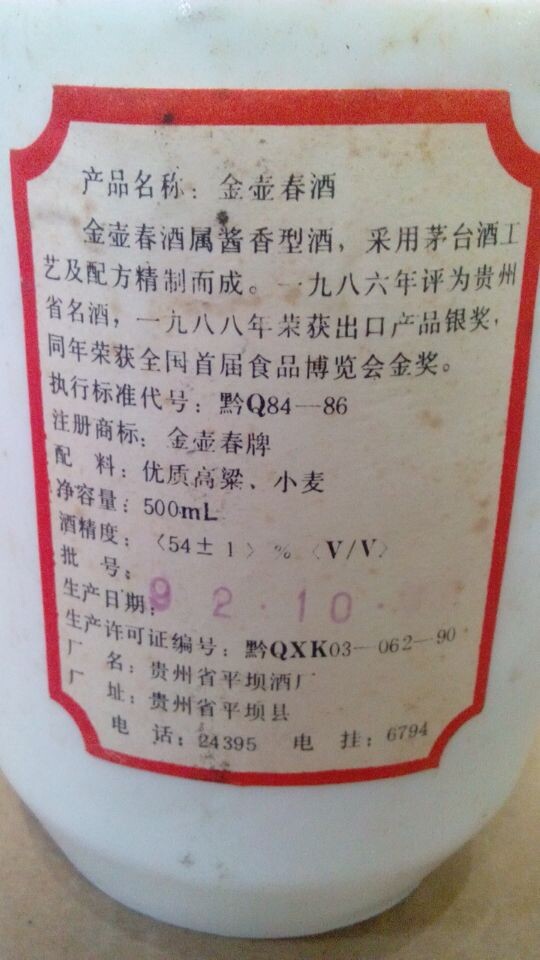 产品名称：金壶春酒
金壶春酒属酱香型酒，采用茅台酒工
艺及配方精制而成。一九八六年评为贵州
省名酒，一九八八年荣获出口产品银奖，
同年荣获全国首届食品博览会金奖。
执行标准代号：黔Q84—86
注册商标：金壶春牌
配 料：优质高粱、小麦
净容量：500mL
酒精度：〈54±1〉%〈V/V〉
批 号：
生产日期：92.10.
生产许可证编号：黔QXK03—062—90
厂 名：贵州省平坝酒厂
厂 址：贵州省平坝县
电 话：24395 电 挂：6794